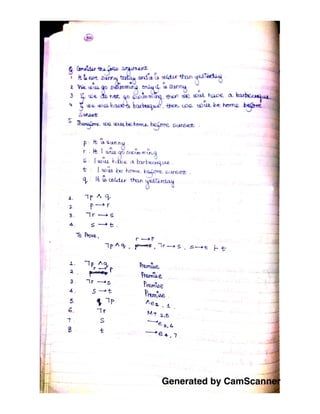 Q Consider the follo argument.
1 It is not sunny today and it is colder than yesterday
2 We will go swimming only if it is sunny.
3 If we do not go swimming, then we will have a barbecque
4 If we will have a barbeque, then we will be home before
sunset
5 Therefore we will be home before sunset
p : It is sunny
r : I will go swimming
s : I will have a barbeque
t : I will be home before sunset
q : It is colder than yesterday
1. ¬p ∧ q
2. p → r
3. ¬r → s
4. s → t.
To Prove,
r → p
¬p ∧ q, , ¬r → s, s → t ⊢ t
1. ¬p ∧ q Premise
2. r → p Premise
3. ¬r → s Premise
4. s → t Premise
5. ¬p ∧e₂, 1.
6. ¬r MT 2,5
7. s →e 3,6
8 t →e 4,7
Generated by CamScanner